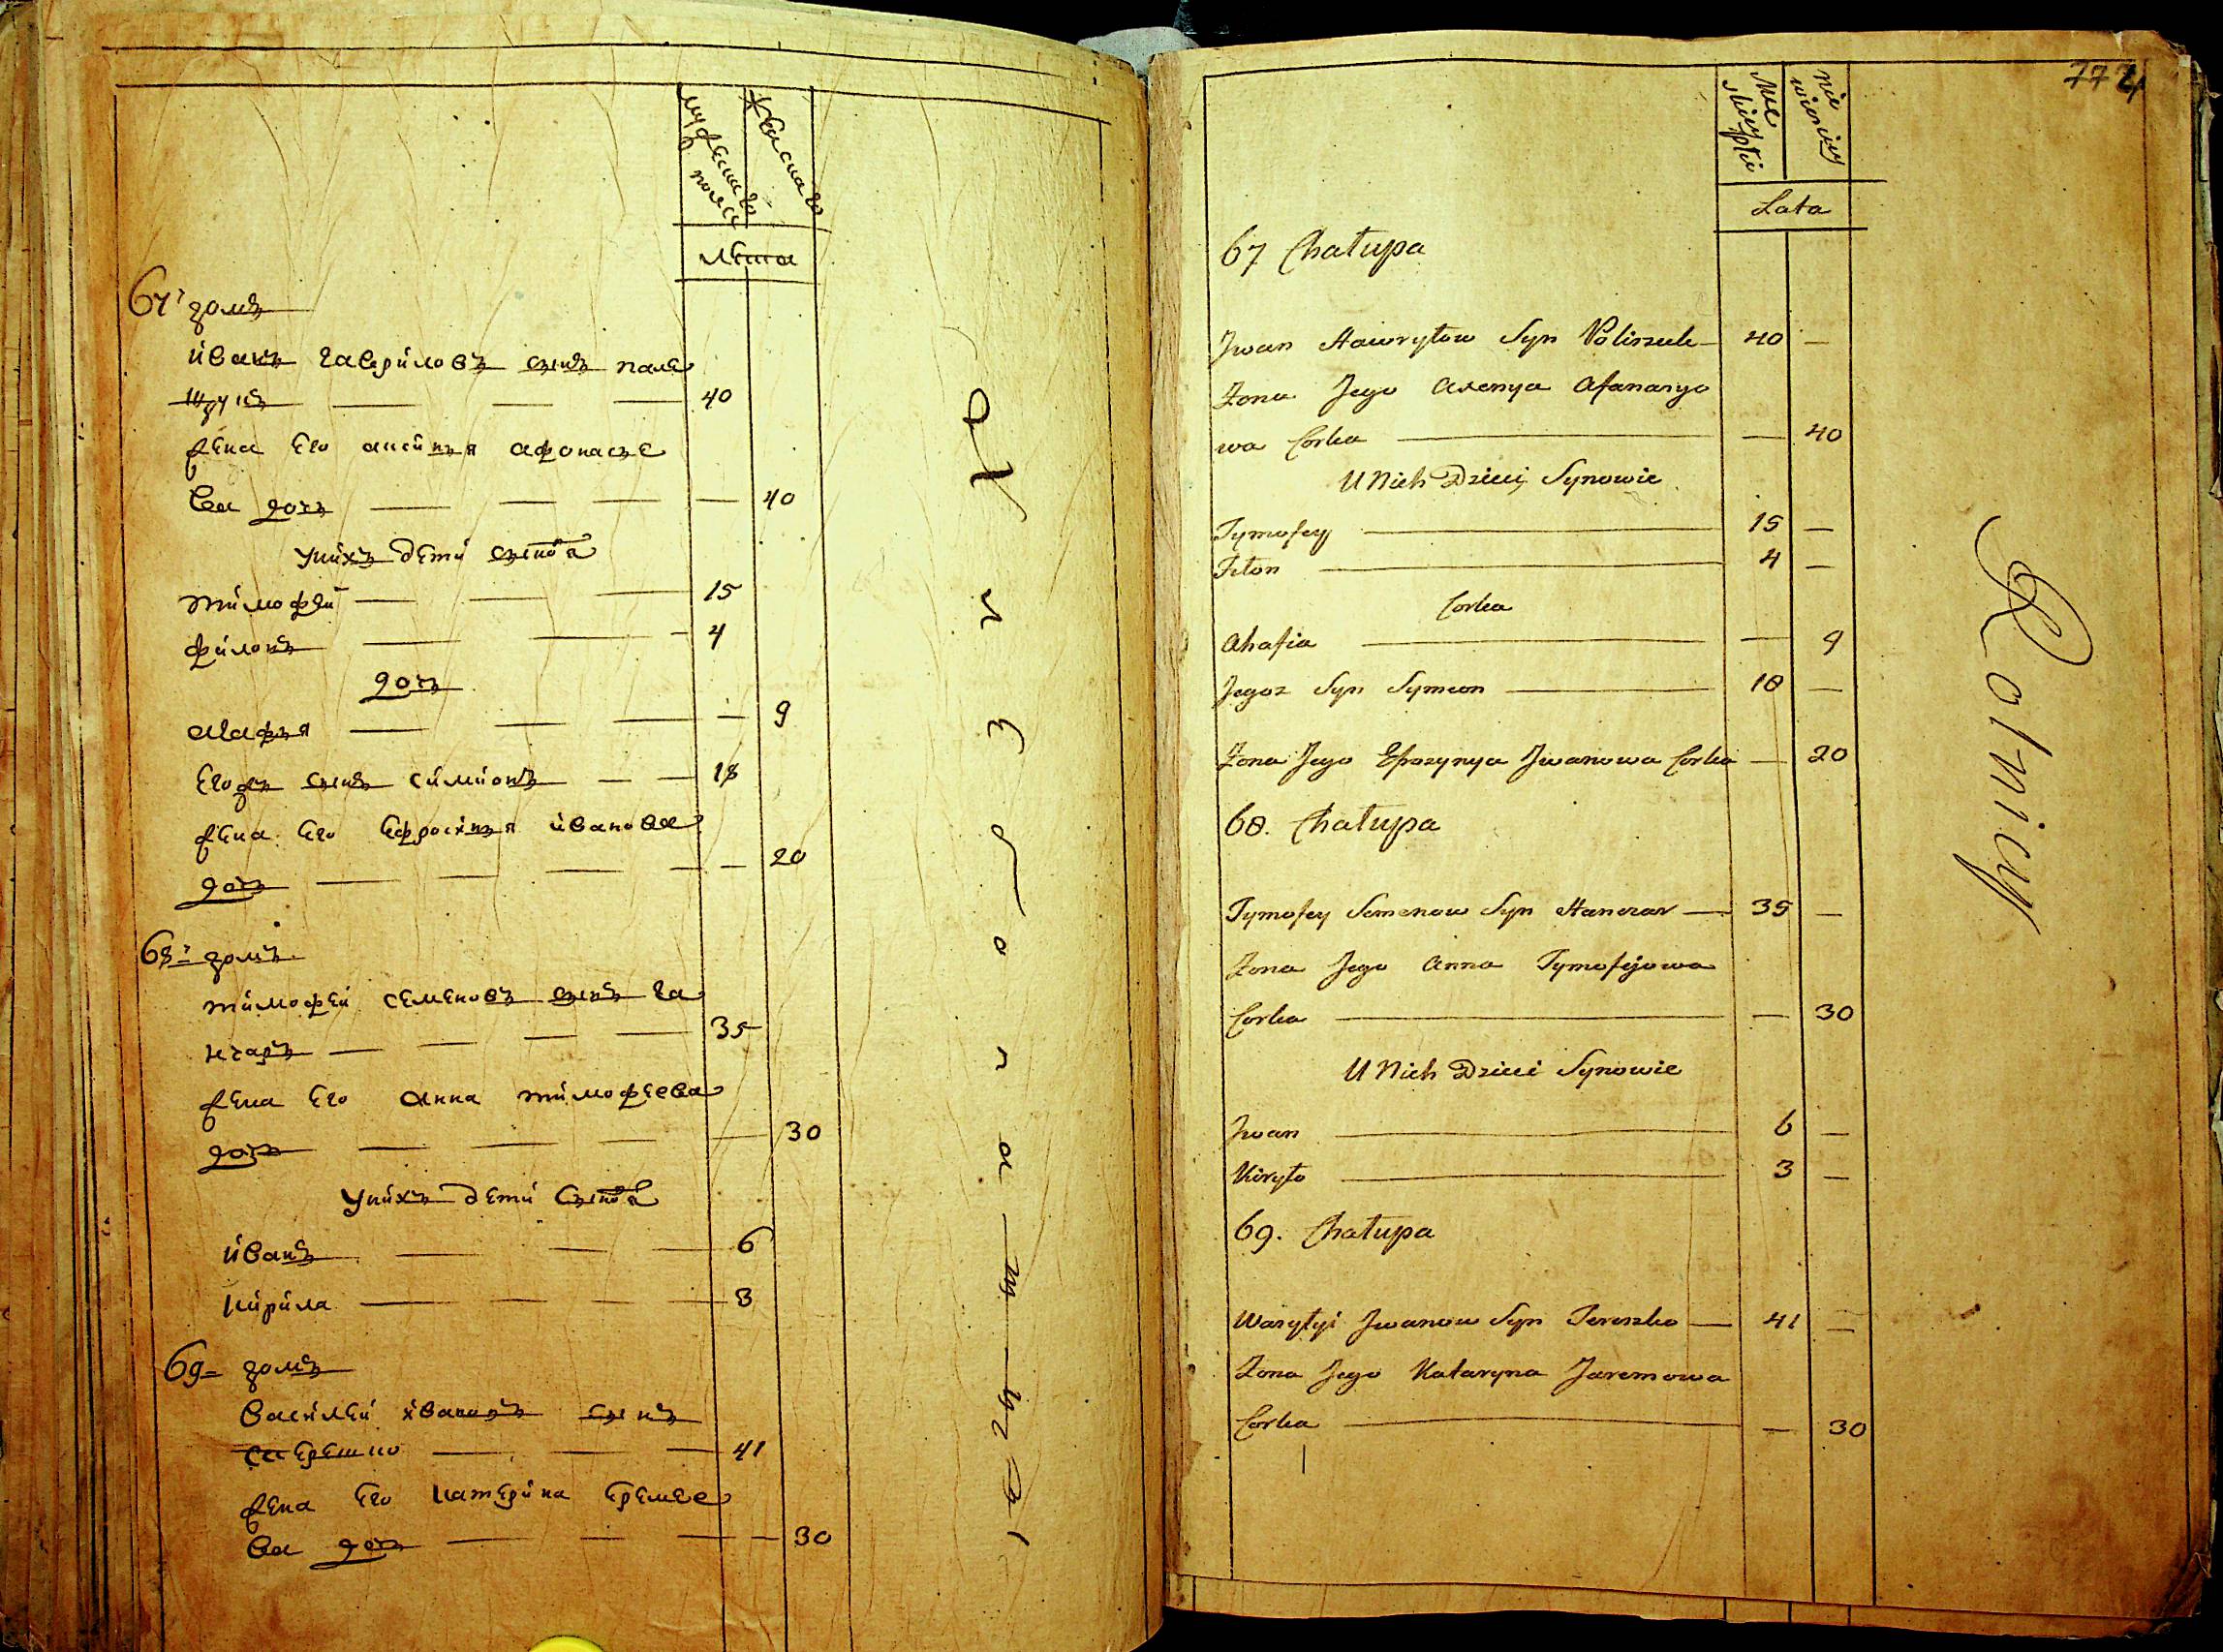 мужеска
полу
женска
лѣта
67 домъ
иванъ гавриловъ сынъ поле
щукъ 40
жена его аксинья афонасье
ва дочь — 40
у нихъ дети сынов̾я
тимофей 15
филонъ 4
дочь
агафья — 9
Егоръ сынъ симионъ — 18
жена его Ефросинья иванова
дочь — 20
68 домъ
тимофей семеновъ сынъ га
нчаръ — 35
жена его анна тимофеева
дочь — 30
у нихъ дети сынов̾я
иванъ 6
кирила 3
69 домъ
василей ивановъ сынъ
41
жена его катерина Ереме
ва дочь — 30
774
Męskiey płci
Niewieściey
Lata
67 Chałupa
Jwan Hawryłow Syn Poliszuk 40 —
Żona Jego Axenya Afanasyo
wa Corka — 40
U Nich Dzieci Synowie
Tymofey 15 —
Filon 4 —
Corka
Ahafia — 9
Jegoz Syn Symeon 18 —
Żona Jego Efrozynya Jwanowa Corka — 20
68. Chałupa
Tymofey Semenow Syn Hanczar — 35 —
Żona Jego Anna Tymofijowa
Corka — 30
U Nich Dzieci Synowie
Jwan 6 —
Kiryło 3 —
69. Chałupa
Wasylyi Jwanow Syn Tereszko — 41 —
Żona Jego Kataryna Jaremowa
Corka — 30
Rolnicy